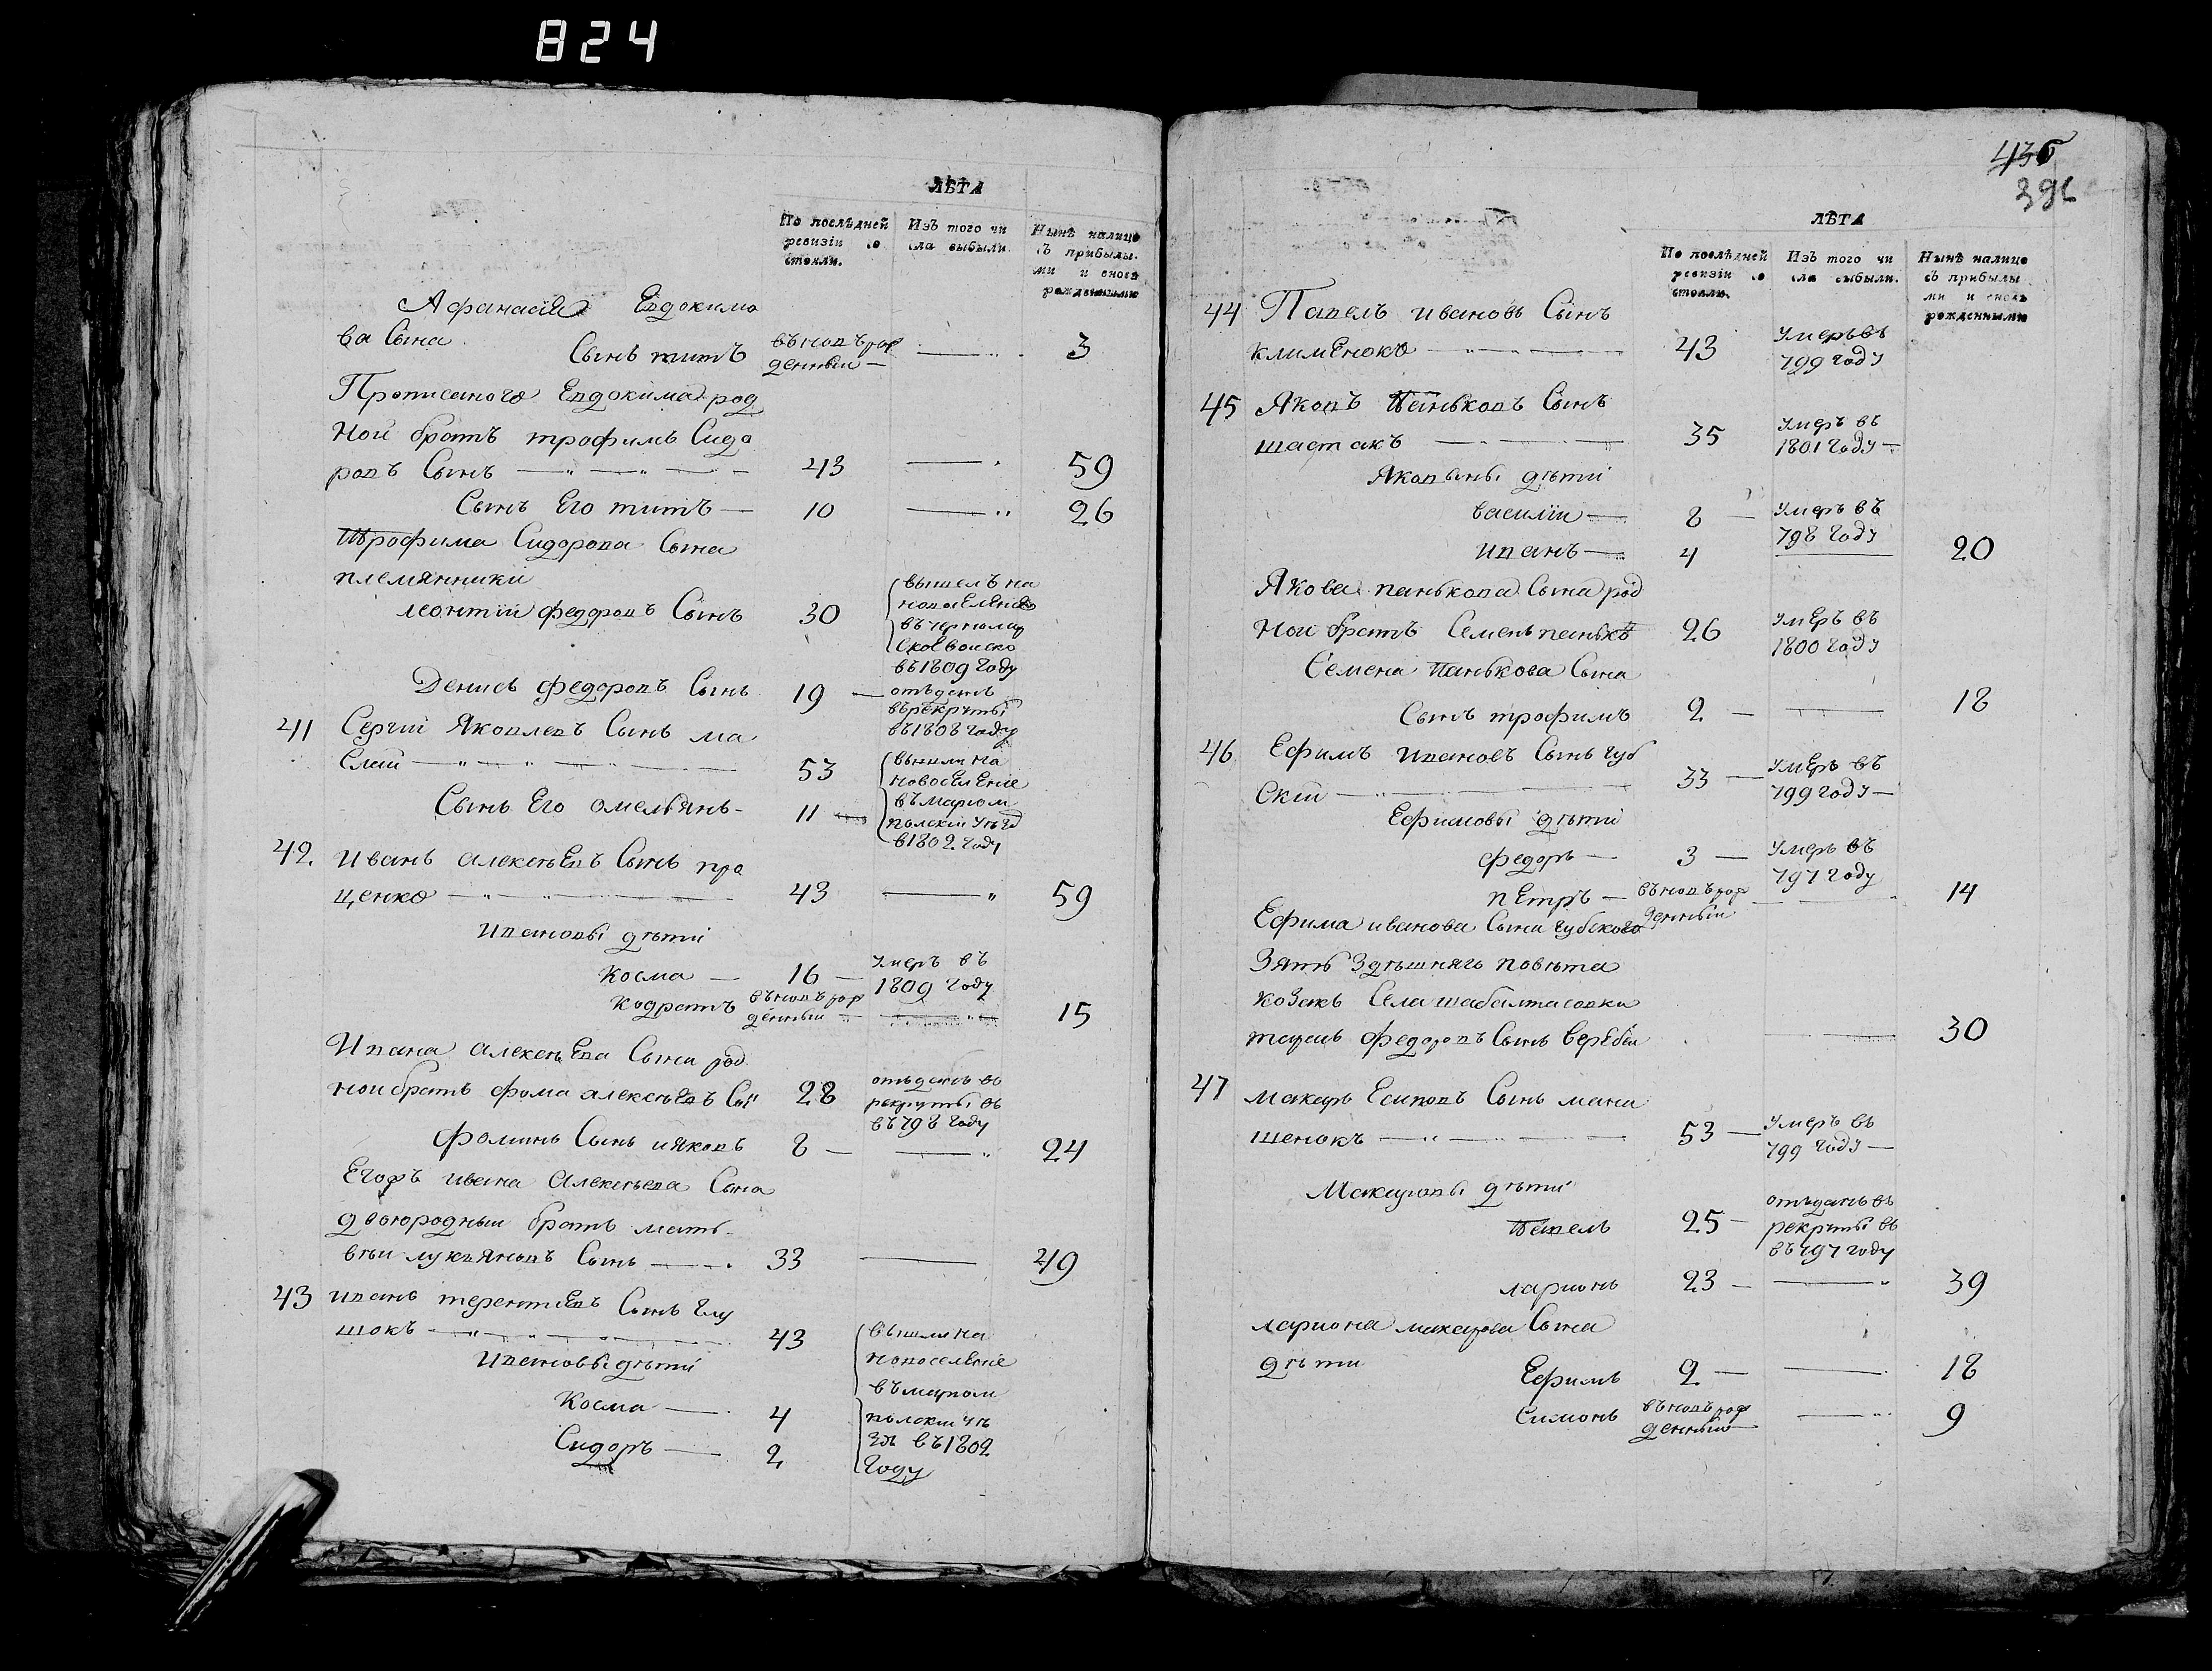 824
ЛѢТА
По послѣдней ревизіи со стояли.
Изъ того чи сла выбыли.
Нынѣ налицо съ прибылы ми и вновь рожденными
Афанасія Евдокимо
ва Сына
Сынъ титъ въновъ рож денный — 3
Прописаного Евдокима род
ной братъ трофимъ Сидо
ровъ Сынъ — 43 — 59
Сынъ Его титъ — 10 — 26
Трофима Сидорова Сына
племянники
леонтій федоровъ Сынъ 30 вышелъ на
новоселение
въ черномор
Ское войско
въ 1809 году
Денисъ федоровъ Сынъ 19 — отъданъ
въ рекруты
въ 1808 году
41 Сергій Яковлевъ Сынъ ма
Слий — 53 вышли на
новоселение
Сынъ Его омельянъ — 11 въ мариом
польскій уѣзд
в 1802 году
42. иванъ алексѣевъ Сынъ про
ценко — 43 — 59
Ивановы дѣти
Косма — 16 — умеръ въ
1809 году
Кодратъ въновъ рож
денный — 15
Ивана алексѣева Сына род
ной братъ фома алексѣевъ Сы 28 отъданъ въ
рекруты въ
въ 798 году
Фоминъ Сынъ ияковъ 8 — 24
Егожъ ивана Алексѣева Сына
двоюродный братъ мат
вѣй лукьяновъ Сынъ — 33 — 49
43 иванъ терентиевъ Сынъ глу
шокъ — 43 вышли на
Ивановы дѣти новоселение
въ мариом
Косма — 4 польскій уѣ
Сидоръ — 2 здъ въ 1802
году
436
396
ЛѢТА
По послѣдней ревизіи со стояли.
Изъ того чи сла выбыли.
Нынѣ налицо съ прибылы ми и вновь рожденными
44 Павелъ ивановъ Сынъ
клименокъ — 43 Умеръ въ
799 году
45 Яковъ панковъ Сынъ
шастакъ — 35 умеръ въ
1801 году —
Яковлевы дѣти
василий — 8 — умеръ въ
798 году
иванъ — 4 — 20
Якова панкова Сына род
ной братъ Семенъ панкв 26 умеръ въ
1800 году
Семена панкова Сына
Сынъ трофимъ 2 — 18
46 Ефимъ ивановъ Сынъ губ
Скій — 33 — умеръ въ
799 году —
Ефимовы дѣти
федоръ — 3 — умеръ въ
797 году
петръ — въновъ рож
денный — 14
Ефима иванова Сына губского
Зять Здѣшняго повѣта
козакъ Села шабалтасовки
тарасъ федоровъ Сынъ веребей — 30
47 макаръ Есиповъ Сынъ мана
шенокъ — 53 — умеръ въ
799 году —
Макаровы дѣти
павелъ 25 — отъданъ въ
рекруты въ
въ 797 году
ларионъ 23 — 39
лариона макарова Сына
дѣти
Ефимъ 2 — 18
Симонъ въновъ рож
денный — 9